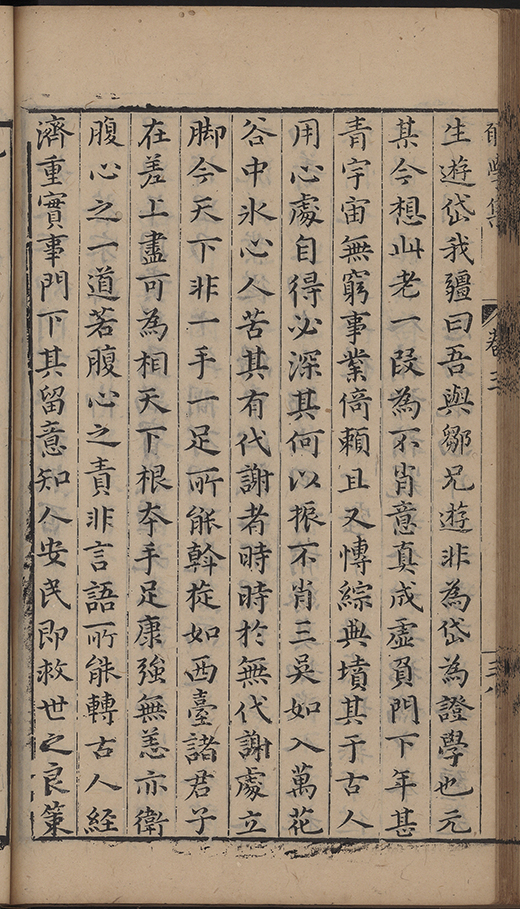 生遊岱我疆曰吾與鄒兄遊非為岱為證學也元
某今想此老一段為不肖意真成虛負門下年甚
青宇宙無窮事業倚賴且又慱綜典墳其于古人
用心處自得必深其何以振不肖三吳如入萬花
谷中氷心人苦其有代謝者時時於無代謝處立
脚今天下非一手一足所能斡㨀如西臺諸君子
在差上盡可為相天下根夲手足康強無恙亦衛
腹心之一道若腹心之責非言語所能轉古人經
濟重實事門下其留意知人安民即救世之良策
集 卷三